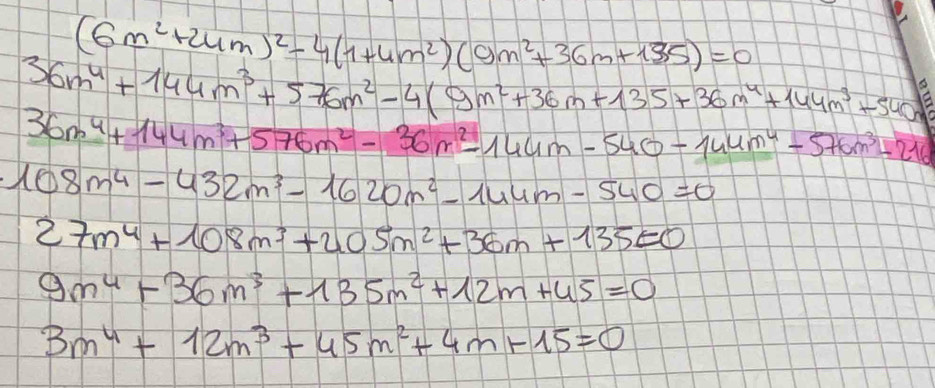 (6m²+24m)²-4(1+4m²)(9m²+36m+135)=0
36m⁴+144m³+576m²-4(9m²+36m+135+36m⁴+144m³+540
36m⁴+144m³+576m²-36m²-144m-540-144m⁴-576m³-216
-108m⁴-432m³-1620m²-144m-540=0
27m⁴+108m³+405m²+36m+135=0
9m⁴+36m³+135m²+12m+45=0
3m⁴+12m³+45m²+4m+15=0